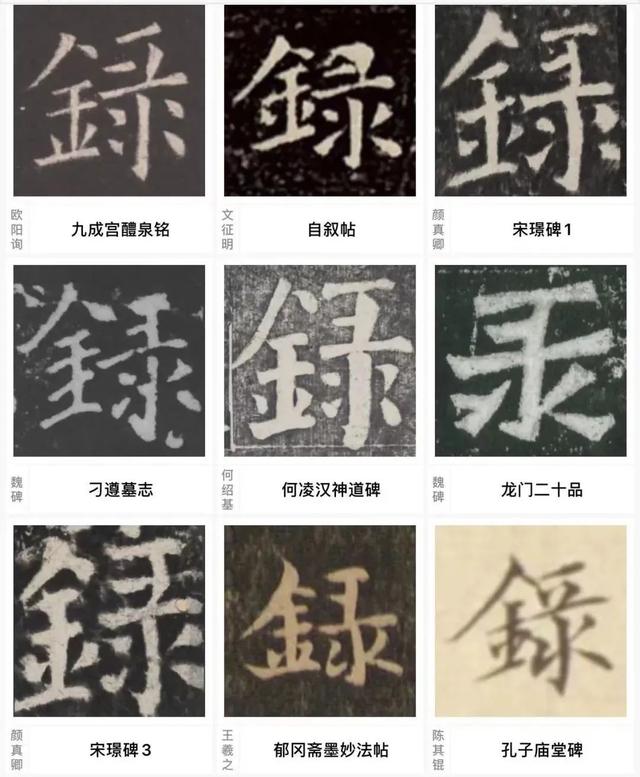 録
録
録
欧阳询
九成宫醴泉铭
文征明
自叙帖
颜真卿
宋璟碑1
録
録
录
魏碑
刁遵墓志
何绍基
何凌汉神道碑
魏碑
龙门二十品
録
録
録
颜真卿
宋璟碑3
王羲之
郁冈斋墨妙法帖
陈其锟
孔子庙堂碑